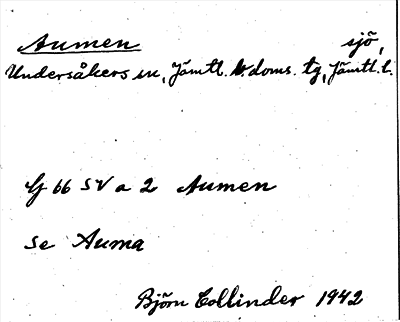 Aumen sjö,
Undersåkers sn, Jämtl. v. doms. tg, Jämtl. l.
Gf 66 SV a 2 Aumen
se Auma
Björn Collinder 1942